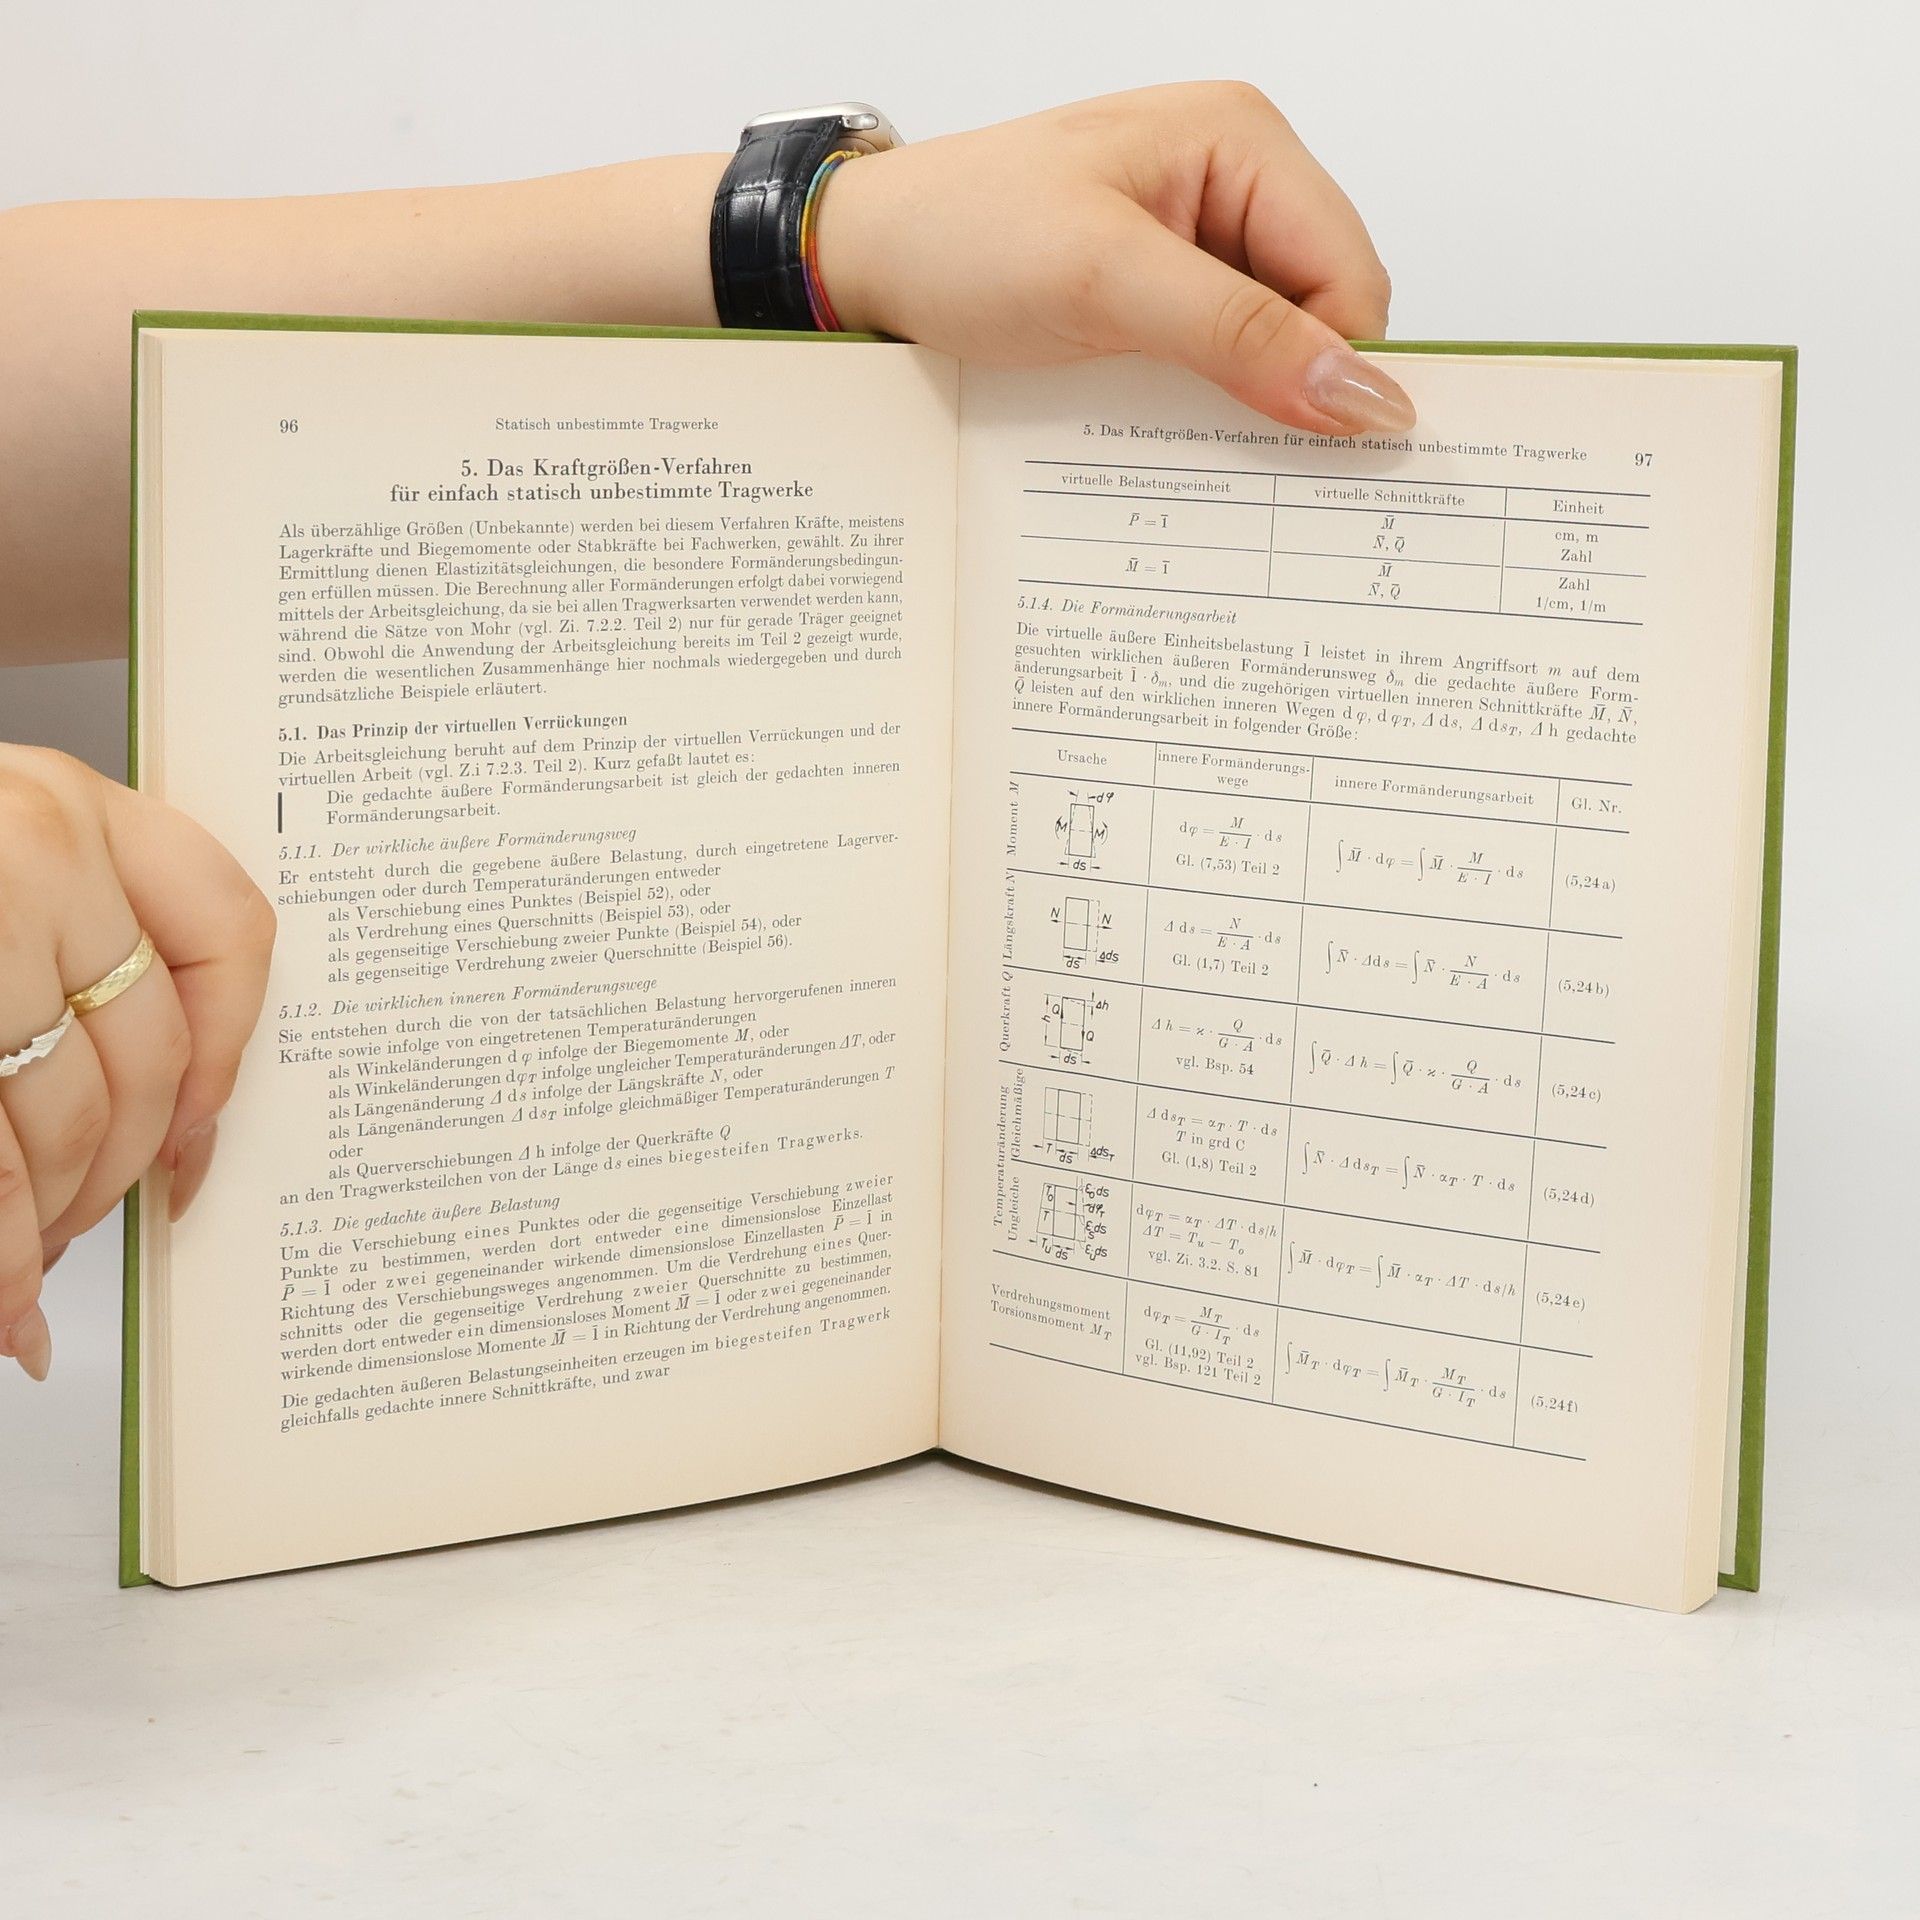 96
Statisch unbestimmte Tragwerke
5. Das Kraftgrößen-Verfahren
für einfach statisch unbestimmte Tragwerke
Als überzählige Größen (Unbekannte) werden bei diesem Verfahren Kräfte, meistens
Lagerkräfte und Biegemomente oder Stabkräfte bei Fachwerken, gewählt. Zu ihrer
Ermittlung dienen Elastizitätsgleichungen, die besondere Formänderungsbedingun-
gen erfüllen müssen. Die Berechnung aller Formänderungen erfolgt dabei vorwiegend
mittels der Arbeitsgleichung, da sie bei allen Tragwerksarten verwendet werden kann,
während die Sätze von Mohr (vgl. Zi. 7.2.2. Teil 2) nur für gerade Träger geeignet
sind. Obwohl die Anwendung der Arbeitsgleichung bereits im Teil 2 gezeigt wurde,
werden die wesentlichen Zusammenhänge hier nochmals wiedergegeben und durch
grundsätzliche Beispiele erläutert.
5.1. Das Prinzip der virtuellen Verrückungen
Die Arbeitsgleichung beruht auf dem Prinzip der virtuellen Verrückungen und der
virtuellen Arbeit (vgl. Z.i 7.2.3. Teil 2). Kurz gefaßt lautet es:
Die gedachte äußere Formänderungsarbeit ist gleich der gedachten inneren
Formänderungsarbeit.
5.1.1. Der wirkliche äußere Formänderungsweg
Er entsteht durch die gegebene äußere Belastung, durch eingetretene Lagerver-
schiebungen oder durch Temperaturänderungen entweder
als Verschiebung eines Punktes (Beispiel 52), oder
als Verdrehung eines Querschnitts (Beispiel 53), oder
als gegenseitige Verschiebung zweier Punkte (Beispiel 54), oder
als gegenseitige Verdrehung zweier Querschnitte (Beispiel 56).
5.1.2. Die wirklichen inneren Formänderungswege
Sie entstehen durch die von der tatsächlichen Belastung hervorgerufenen inneren
Kräfte sowie infolge von eingetretenen Temperaturänderungen
als Winkeländerungen d φ infolge der Biegemomente M, oder
als Winkeländerungen dφT infolge ungleicher Temperaturänderungen ΔT, oder
als Längenänderung Δ ds infolge der Längskräfte N, oder
als Längenänderungen Δ dsT infolge gleichmäßiger Temperaturänderungen T
oder
als Querverschiebungen Δ h infolge der Querkräfte Q
an den Tragwerksteilchen von der Länge ds eines biegesteifen Tragwerks.
5.1.3. Die gedachte äußere Belastung
Um die Verschiebung eines Punktes oder die gegenseitige Verschiebung zweier
Punkte zu bestimmen, werden dort entweder eine dimensionslose Einzellast
P̄ = 1̄ oder zwei gegeneinander wirkende dimensionslose Einzellasten P̄ = 1̄ in
Richtung des Verschiebungsweges angenommen. Um die Verdrehung eines Quer-
schnitts oder die gegenseitige Verdrehung zweier Querschnitte zu bestimmen,
werden dort entweder ein dimensionsloses Moment M̄ = 1̄ oder zwei gegeneinander
wirkende dimensionslose Momente M̄ = 1̄ in Richtung der Verdrehung angenommen.
Die gedachten äußeren Belastungseinheiten erzeugen im biegesteifen Tragwerk
gleichfalls gedachte innere Schnittkräfte, und zwar
5. Das Kraftgrößen-Verfahren für einfach statisch unbestimmte Tragwerke 97
virtuelle Belastungseinheit virtuelle Schnittkräfte Einheit
P̄ = 1̄ M̄ cm, m
N̄, Q̄ Zahl
M̄ = 1̄ M̄ Zahl
N̄, Q̄ 1/cm, 1/m
5.1.4. Die Formänderungsarbeit
Die virtuelle äußere Einheitsbelastung 1̄ leistet in ihrem Angriffsort m auf dem
gesuchten wirklichen äußeren Formänderunsweg δm die gedachte äußere Form-
änderungsarbeit 1̄ · δm, und die zugehörigen virtuellen inneren Schnittkräfte M̄, N̄,
Q̄ leisten auf den wirklichen inneren Wegen d φ, d φT, Δ ds, Δ dsT, Δ h gedachte
innere Formänderungsarbeit in folgender Größe:
Ursache innere Formänderungs-wege innere Formänderungsarbeit Gl. Nr.
Moment M
dφ
M M
ds
dφ = M/(E · I) · ds
Gl. (7,53) Teil 2
∫ M̄ · dφ = ∫ M̄ · M/(E · I) · ds
(5,24a)
Längskraft N
N N
ds Δds
Δ ds = N/(E · A) · ds
Gl. (1,7) Teil 2
∫ N̄ · Δds = ∫ N̄ · N/(E · A) · ds
(5,24b)
Querkraft Q
h Q Δh
Q
ds
Δ h = ϰ · Q/(G · A) · ds
vgl. Bsp. 54
∫ Q̄ · Δ h = ∫ Q̄ · ϰ · Q/(G · A) · ds
(5,24c)
Temperaturänderung
Gleichmäßige
T ds ΔdsT
Δ dsT = αT · T · ds
T in grd C
Gl. (1,8) Teil 2
∫ N̄ · Δ dsT = ∫ N̄ · αT · T · ds
(5,24d)
Ungleiche
To εods
dφT
T εsds
Tu ds εuds
dφT = αT · ΔT · ds/h
ΔT = Tu − To
vgl. Zi. 3.2. S. 81
∫ M̄ · dφT = ∫ M̄ · αT · ΔT · ds/h
(5,24e)
Verdrehungsmoment
Torsionsmoment MT
dφT = MT/(G · IT) · ds
Gl. (11,92) Teil 2
vgl. Bsp. 121 Teil 2
∫ M̄T · dφT = ∫ M̄T · MT/(G · IT) · ds
(5,24f)